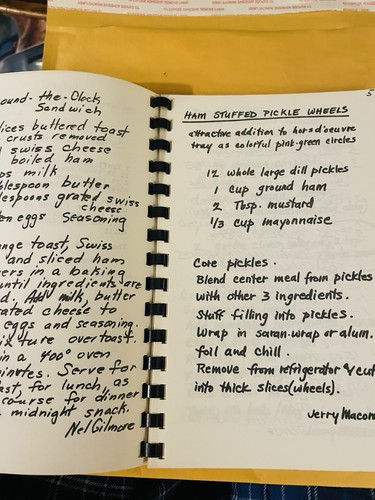 ound-the-Clock
Sandwich
lices buttered toast
crusts removed
swiss cheese
boiled ham
ps milk
blespoon butter
lespoons grated swiss
cheese
ten eggs seasoning
nge toast, Swiss
and sliced ham
ers in a baking
until ingredients are
d. Add milk, butter
rated cheese to
eggs and seasoning.
ixture over toast.
in a 400° oven
minutes. Serve for
ast, for lunch, as
course for dinner
midnight snack.
Nel Gilmore
5
HAM STUFFED PICKLE WHEELS
attractive addition to hors d'oeuvre
tray as colorful pink-green circles
12 whole large dill pickles
1 cup ground ham
2 Tbsp. mustard
1/3 cup mayonnaise
Core pickles.
Blend center meal from pickles
with other 3 ingredients.
Stuff filling into pickles.
Wrap in saran wrap or alum.
foil and chill.
Remove from refrigerator & cut
into thick slices (wheels).
Jerry Macom